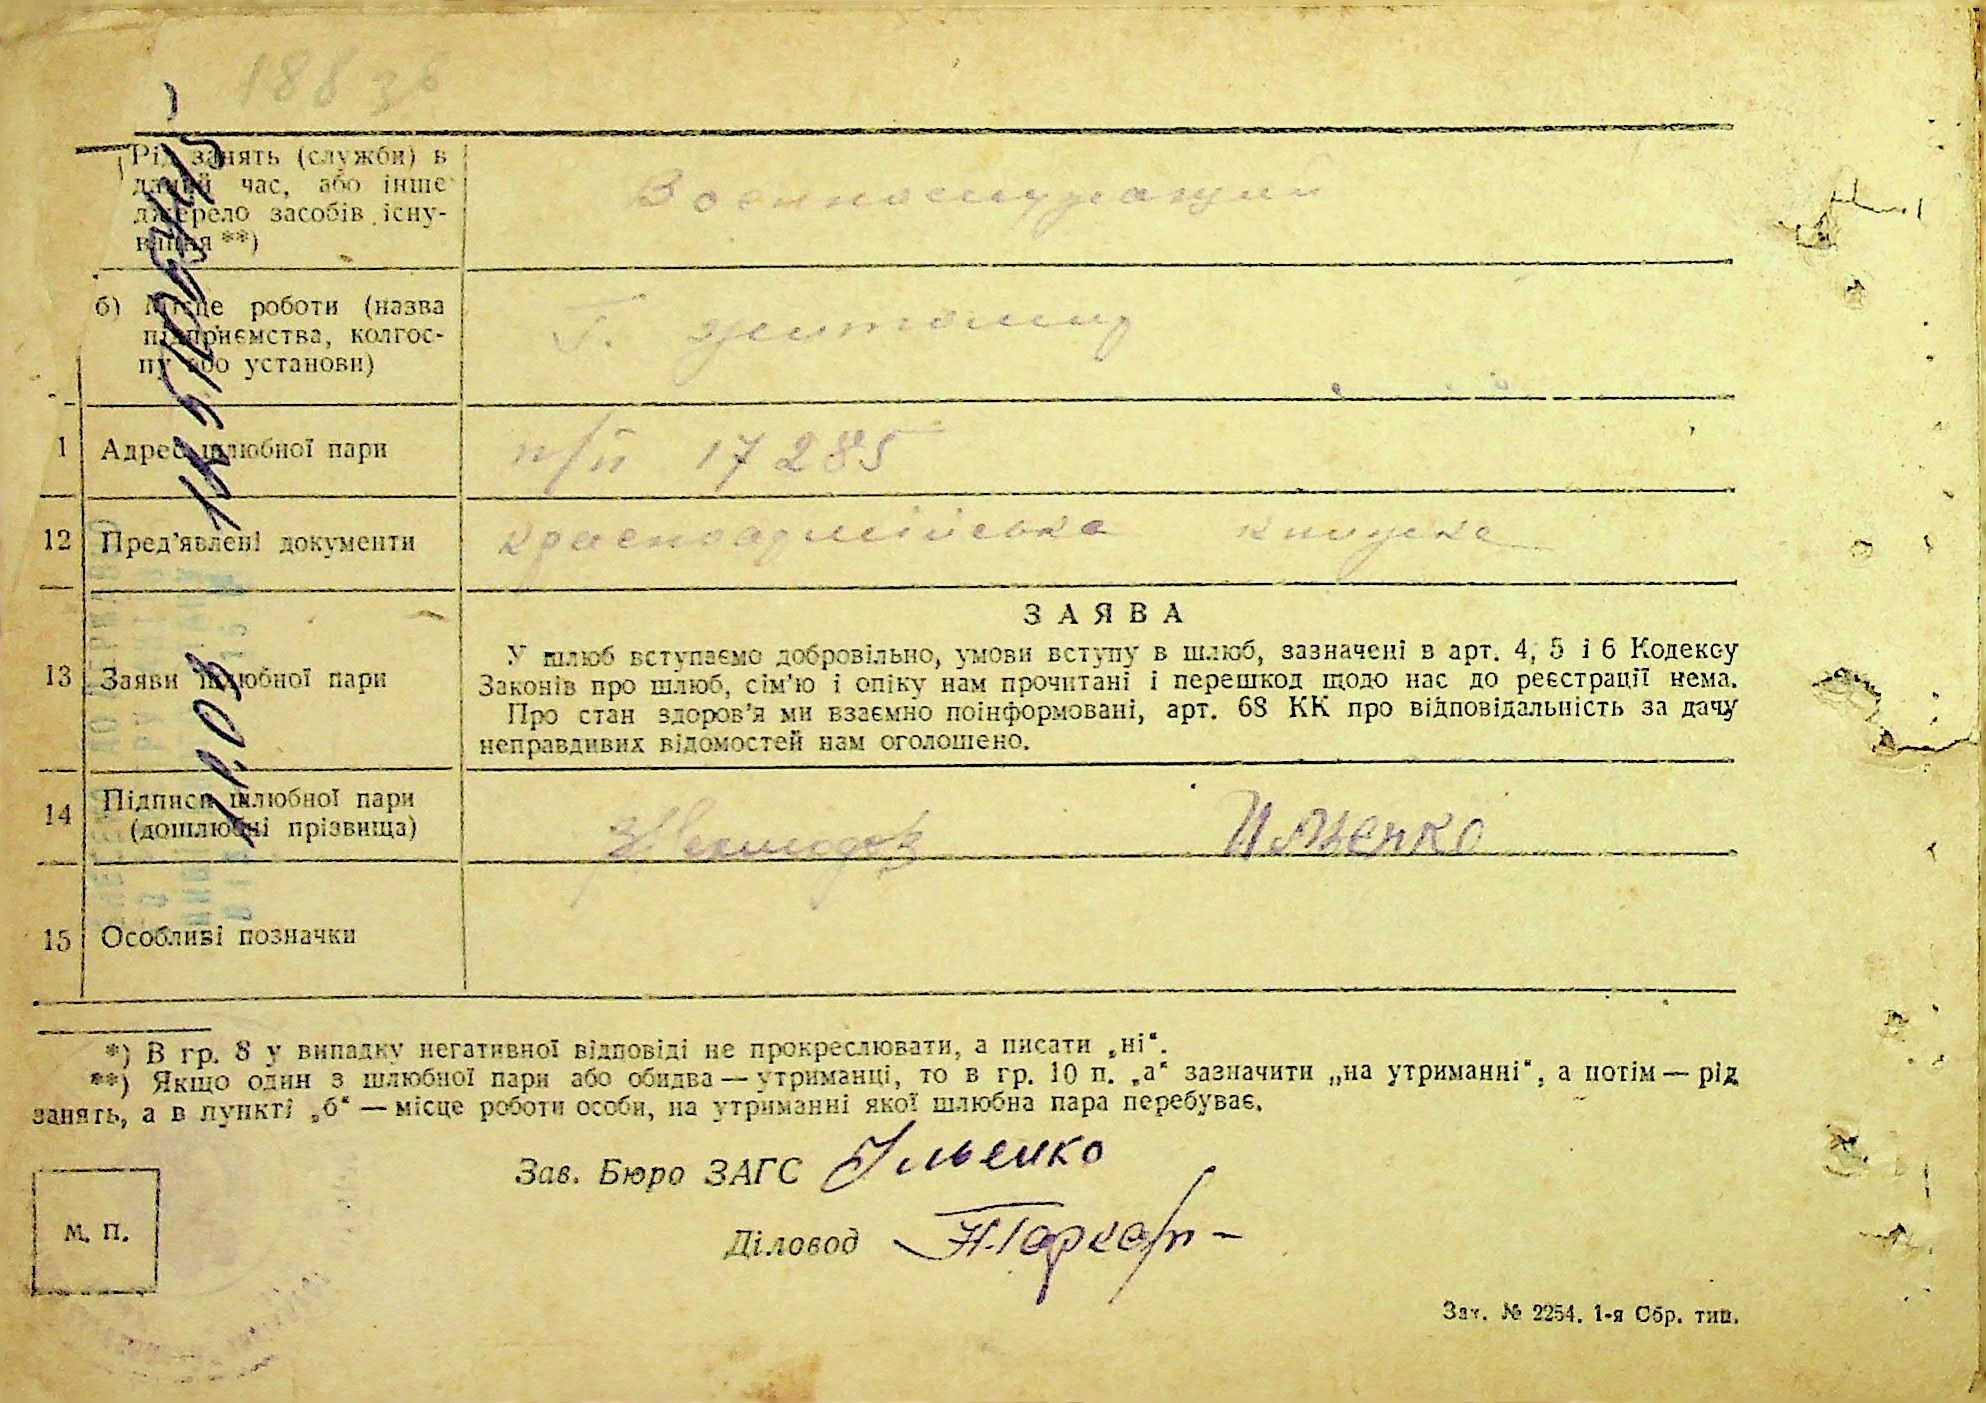 188 зв
Рід занять (служби) в
даний час, або інше
джерело засобів існу-
вання **)
Военнослужащий
б) Місце роботи (назва
підприємства, колгос-
пу або установи)
г. Житомир
1 Адрес шлюбної пари
п/п 17285
12 Пред'явлені документи
красноармійська книжка
13 Заяви шлюбної пари
ЗАЯВА
У шлюб вступаємо добровільно, умови вступу в шлюб, зазначені в арт. 4, 5 і 6 Кодексу
Законів про шлюб, сім'ю і опіку нам прочитані і перешкод щодо нас до реєстрації нема.
Про стан здоров'я ми взаємно поінформовані, арт. 68 КК про відповідальність за дачу
неправдивих відомостей нам оголошено.
14 Підписи шлюбної пари
(дошлюбні прізвища)
15 Особливі позначки
*) В гр. 8 у випадку негативної відповіді не прокреслювати, а писати „ні“.
**) Якщо один з шлюбної пари або обидва — утриманці, то в гр. 10 п. „а“ зазначити „на утриманні“, а потім — рід
занять, а в пункті „б“ — місце роботи особи, на утриманні якої шлюбна пара перебуває.
Зав. Бюро ЗАГС Ільенко
Діловод
М. П.
Зак. № 2254. 1-я Обр. тип.